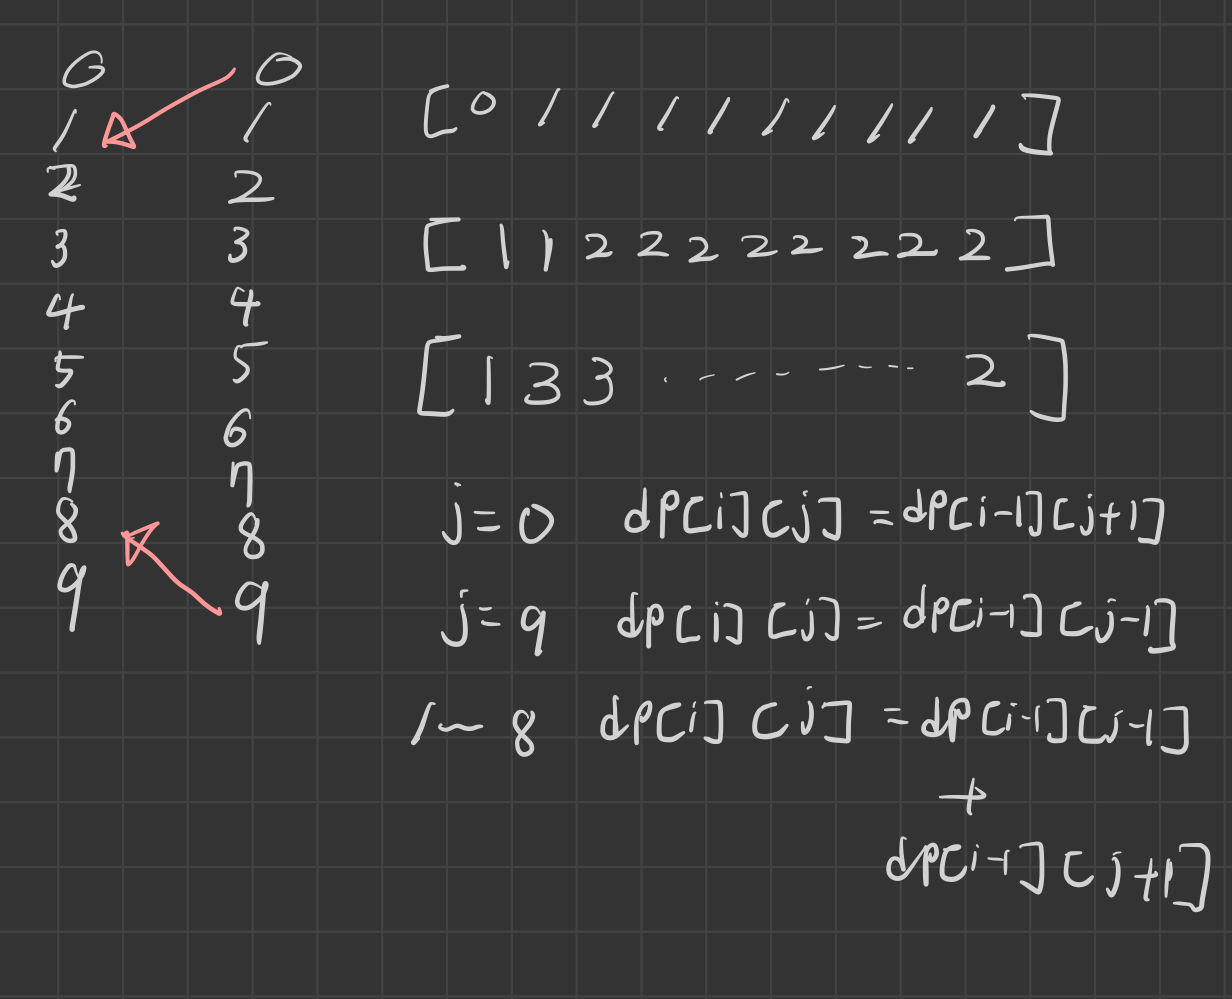 0 0
1 1
2 2
3 3
4 4
5 5
6 6
7 7
8 8
9 9
[0 1 1 1 1 1 1 1 1 1]
[1 1 2 2 2 2 2 2 2 2 2]
[1 3 3 ......... 2]
j=0 dp[i][j] = dp[i-1][j+1]
j=9 dp[i][j] = dp[i-1][j-1]
1~8 dp[i][j] = dp[i-1][j-1]
+
dp[i-1][j+1]